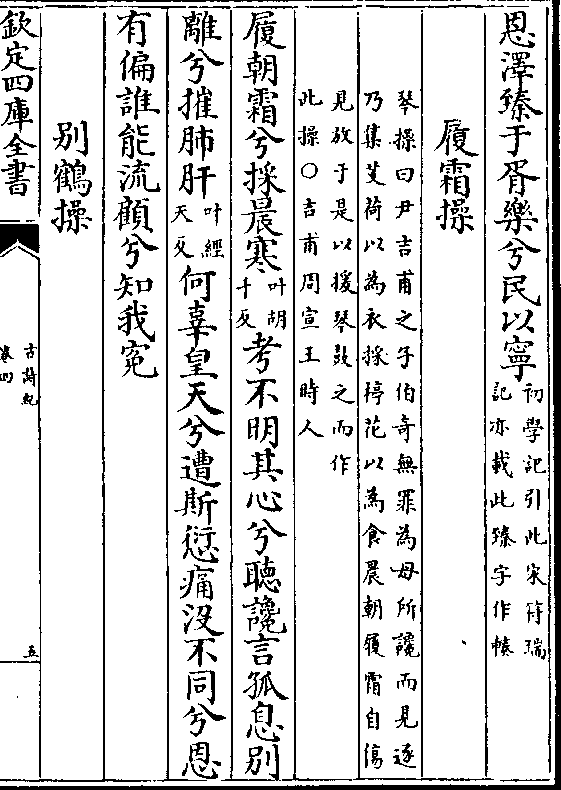 恩澤臻于胥樂兮民以寧初學記引此宋符瑞
記亦載此臻字作轃
履霜操
琴操曰尹吉甫之子伯奇無罪為母所讒而見逐
乃集芰荷以為衣採楟花以為食晨朝履霜自傷
見放于是以援琴鼓之而作
此操○吉甫周宣王時人
履朝霜兮採晨寒叶胡千反考不明其心兮聽讒言孤息别
離兮摧肺肝叶經天反何辜皇天兮遭斯愆痛沒不同兮恩
有偏誰能流顧兮知我寃
别鶴操
欽定四庫全書
古詩紀
卷四
五